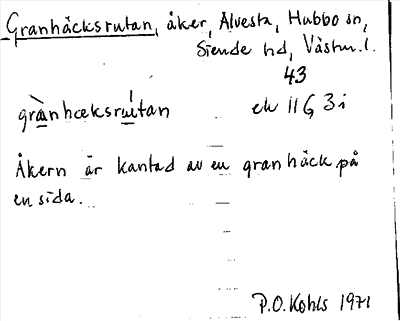 Granhäcksrutan, åker, Alvesta, Hubbo sn,
Siende hd, Västm. l.
43
grànhæksrùtan ek 11G 3i
Åkern är kantad av en granhäck på
en sida.
P.O. Kohls 1971